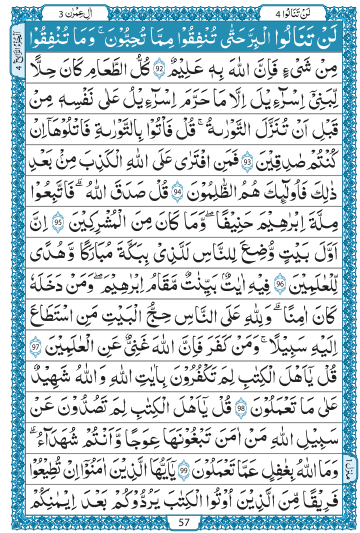 لَنْ تَنَالُوا 4
اٰلِ عِمْرٰنَ 3
لَنْ تَنَالُوا الْبِرَّ حَتّٰى تُنْفِقُوْا مِمَّا تُحِبُّوْنَ ۛ وَمَا تُنْفِقُوْا
مِنْ شَىْءٍ فَاِنَّ اللّٰهَ بِهٖ عَلِيْمٌ 92 كُلُّ الطَّعَامِ كَانَ حِلًّا
لِّبَنِىْٓ اِسْرَآءِيْلَ اِلَّا مَا حَرَّمَ اِسْرَآءِيْلُ عَلٰى نَفْسِهٖ مِنْ
قَبْلِ اَنْ تُنَزَّلَ التَّوْرٰىةُ ۗ قُلْ فَاْتُوْا بِالتَّوْرٰىةِ فَاتْلُوْهَاۤ اِنْ
كُنْتُمْ صٰدِقِيْنَ 93 فَمَنِ افْتَرٰى عَلَى اللّٰهِ الْكَذِبَ مِنْۢ بَعْدِ
ذٰلِكَ فَاُولٰٓئِكَ هُمُ الظّٰلِمُوْنَ 94 قُلْ صَدَقَ اللّٰهُ ۗ فَاتَّبِعُوْا
مِلَّةَ اِبْرٰهِيْمَ حَنِيْفًا ۗ وَمَا كَانَ مِنَ الْمُشْرِكِيْنَ 95 اِنَّ
اَوَّلَ بَيْتٍ وُّضِعَ لِلنَّاسِ لَلَّذِىْ بِبَكَّةَ مُبٰرَكًا وَّهُدًى
لِّلْعٰلَمِيْنَ 96 فِيْهِ اٰيٰتٌۢ بَيِّنٰتٌ مَّقَامُ اِبْرٰهِيْمَ ۚ وَمَنْ دَخَلَهٗ
كَانَ اٰمِنًا ۗ وَلِلّٰهِ عَلَى النَّاسِ حِجُّ الْبَيْتِ مَنِ اسْتَطَاعَ
اِلَيْهِ سَبِيْلًا ۗ وَمَنْ كَفَرَ فَاِنَّ اللّٰهَ غَنِىٌّ عَنِ الْعٰلَمِيْنَ 97
قُلْ يٰۤاَهْلَ الْكِتٰبِ لِمَ تَكْفُرُوْنَ بِاٰيٰتِ اللّٰهِ وَاللّٰهُ شَهِيْدٌ
عَلٰى مَا تَعْمَلُوْنَ 98 قُلْ يٰۤاَهْلَ الْكِتٰبِ لِمَ تَصُدُّوْنَ عَنْ
سَبِيْلِ اللّٰهِ مَنْ اٰمَنَ تَبْغُوْنَهَا عِوَجًا وَّاَنْتُمْ شُهَدَآءُ ۗ
وَمَا اللّٰهُ بِغٰفِلٍ عَمَّا تَعْمَلُوْنَ 99 يٰۤاَيُّهَا الَّذِيْنَ اٰمَنُوْۤا اِنْ تُطِيْعُوْا
فَرِيْقًا مِّنَ الَّذِيْنَ اُوْتُوا الْكِتٰبَ يَرُدُّوْكُمْ بَعْدَ اِيْمَانِكُمْ
57